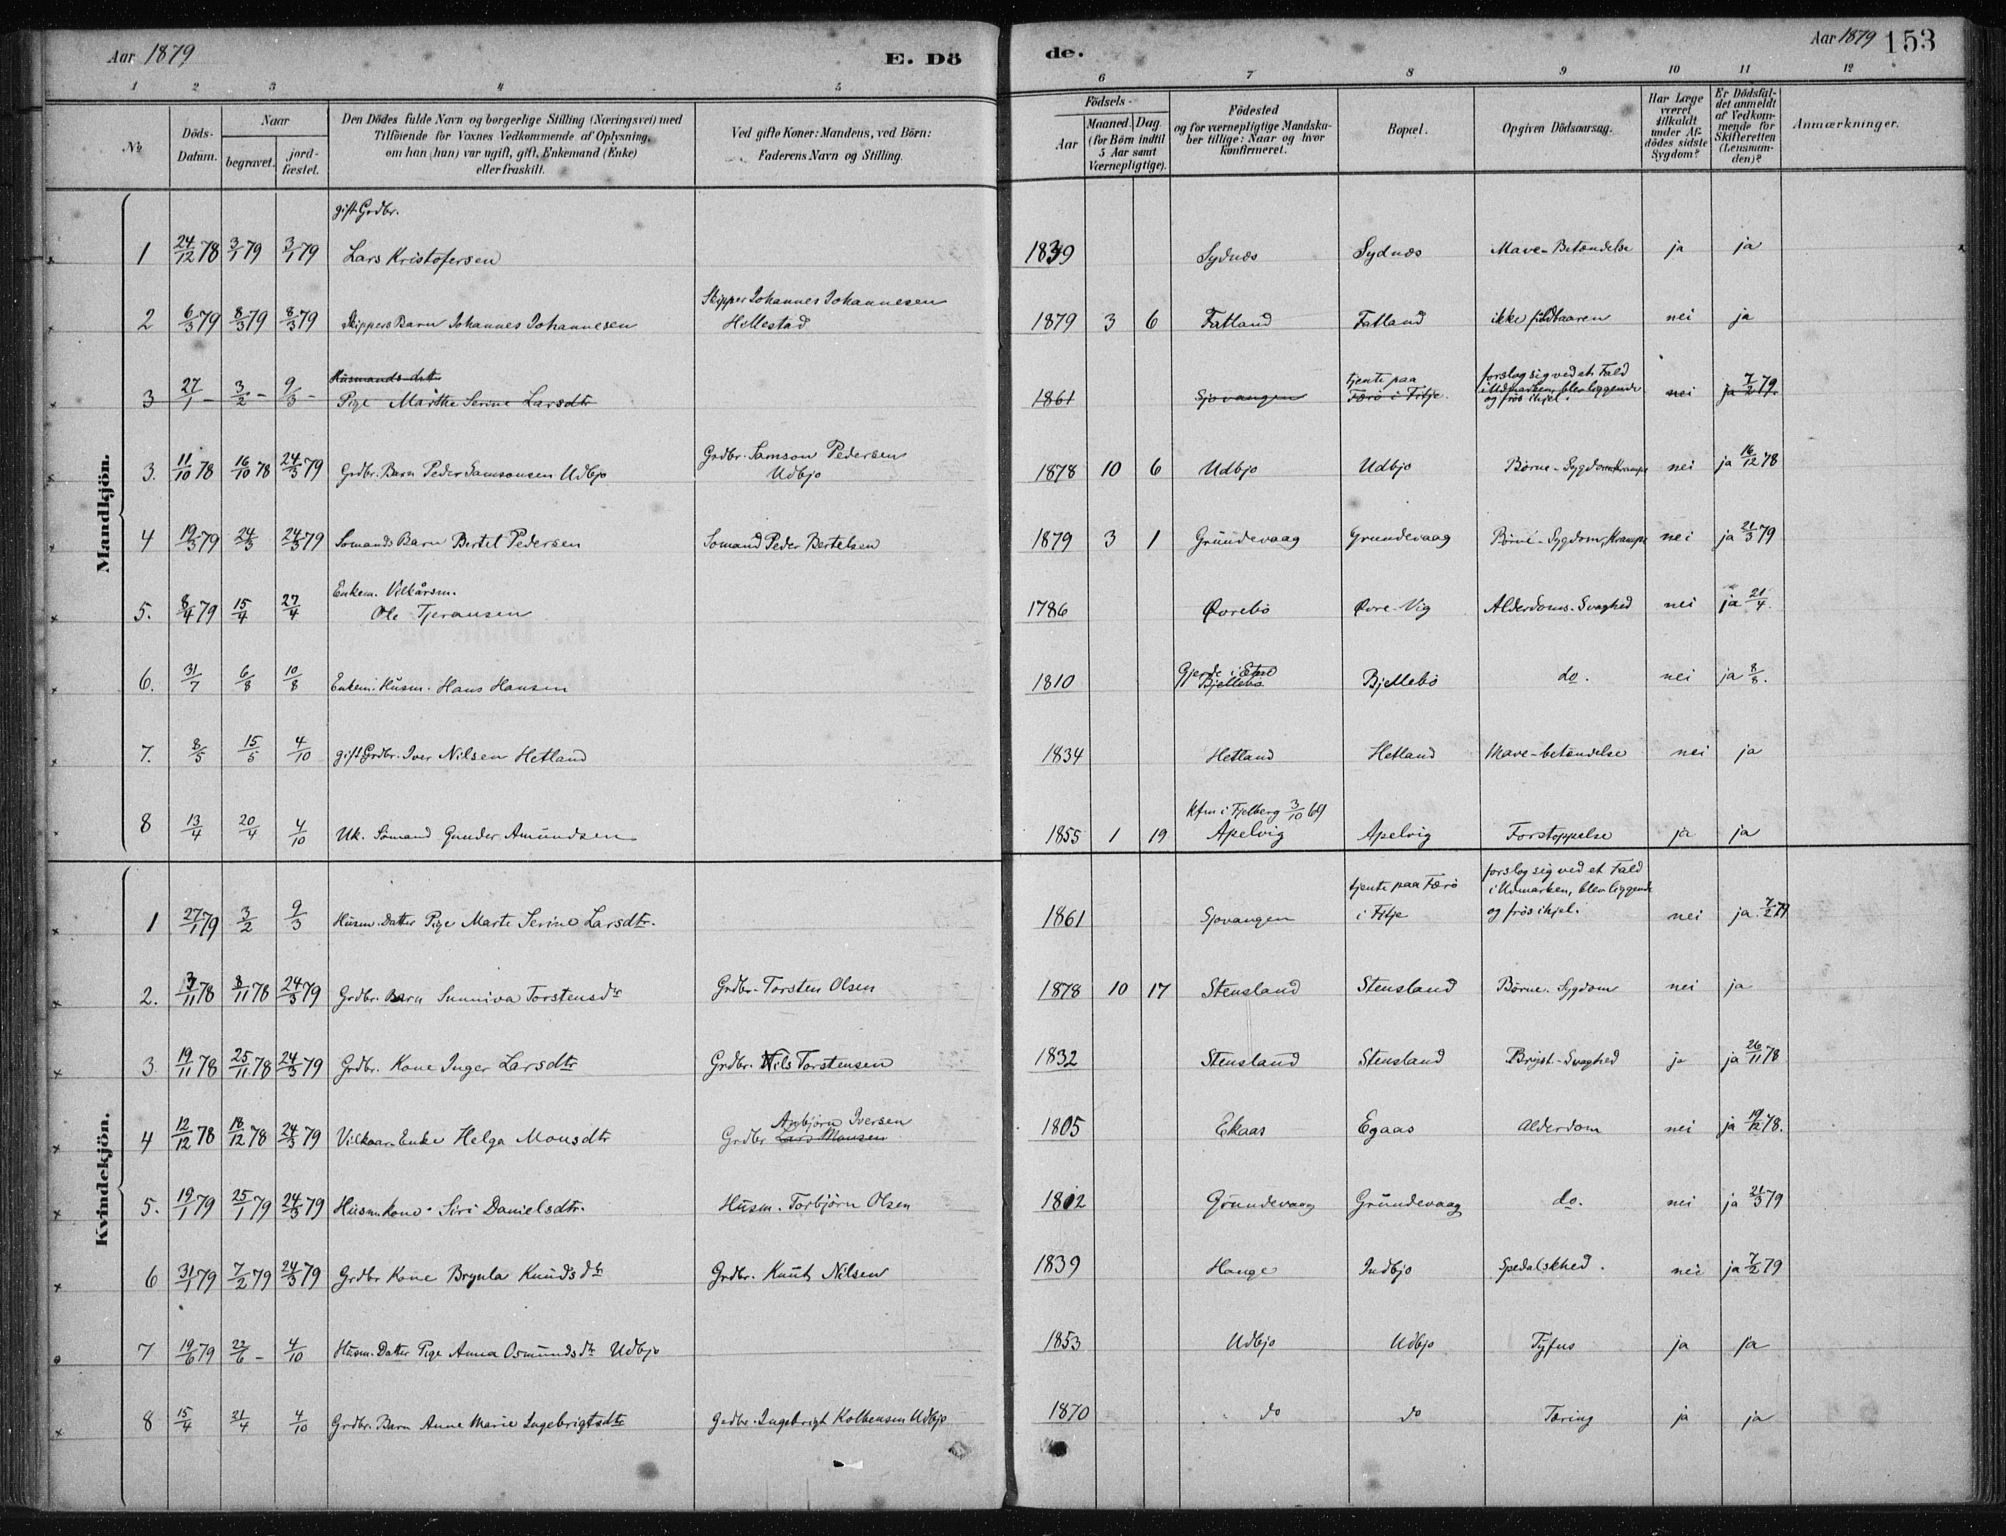 Aar 1879
E. Dö
de.
Aar 1879 153
1 2 3 4 5 6 7 8 9 10 11 12
No
Döds-
Datum.
Naar
begravet.
jord-
fæstet.
Den Dödes fulde Navn og borgerlige Stilling (Næringsvei) med
Tilföiende for Voxnes Vedkommende af Oplysning,
om han (hun) var ugift, gift, Enkemand (Enke)
eller fraskilt.
Ved gifte Koner: Mandens, ved Börn:
Faderens Navn og Stilling.
Födsels-
Aar
Maaned. Dag
(for Börn indtil
5 Aar samt
Værnepligtige).
Födested
og for værnepligtige Mandska-
ber tillige: Naar og hvor
konfirmeret.
Bopæl.
Opgiven Dödsaarsag.
Har Læge
været
tilkaldt
under Af-
dödes sidste
Sygdom?
Er Dödsfal-
det anmeldt
af Vedkom-
mende for
Skifteretten
(Lensman-
den)?
Anmærkninger.
Mandkjön.
gift Grdbr.
1 24/12 78 3/1 79 3/1 79 Lars Kristofersen 1839 Sydnæs Sydnæs Mave-Betændelse ja ja
Skipper Johannes Johannesen
2 6/3 79 8/3 79 8/3 79 Skippers Barn Johannes Johannesen Hellestad 1879 3 6 Fatland Fatland ikke fuldbaaren nei ja
Husmands datter tjente paa forslog sig ved et Fald
3 27/1 - 3/2 - 9/3 - Pige Marthe Serine Larsdtr 1861 Sjovangen Færö i Fitje i Udmarken, blev liggende nei ja 7/2 79.
og frös ihjel.
Grdbr. Samson Pedersen
3. 11/10 78 16/10 78 24/3 79 Grdbr. Barn Peder Samsonsen Udbjo Udbjo 1878 10 6 Udbjo Udbjo Börne-Sygdom Krampe nei ja 16/12 78
4 19/3 79 24/3 24/3 79 Somands Barn Bertel Pedersen Somand Peder Bertelsen 1879 3 1 Grundevaag Grundevaag Börne-Sygdom, Krampe nei ja 21/3 79
Enkem. Vilkårsm.
5. 8/4 79 15/4 27/4 Ole Tjeransen 1786 Øvrebö Øvre-Vig Alderdoms-Svaghed nei ja 21/4.
Gjerde i Etne
6. 31/7 6/8 10/8 Enkem. Husm. Hans Hansen 1810 Bjellebö Bjellebö do. nei ja 8/8.
7. 8/5 15/5 4/10 gift Grdbr. Iver Nilsen Hetland 1834 Hetland Hetland Mave-betændelse nei ja
kfm i Fjelberg 3/10 69
8 13/4 20/4 4/10 Uk. Sömand Gunder Amundsen 1855 1 19 Apelvig Apelvig Forstoppelse ja ja
Kvindekjön.
tjente paa Færö forslog sig ved et Fald
i Fitje i Udmarken, blev liggende
1 27/1 79 3/2 9/3 Husm. Datter Pige Marte Serine Larsdtr. 1861 Sjovangen og frös ihjel. nei ja 7/2 79
2. 3/11 78 8/11 78 24/3 79 Grdbr. Barn Sunniva Torstensdtr Grdbr. Torsten Olsen 1878 10 17 Stensland Stensland Börne-Sygdom nei ja
3 19/11 78 25/11 78 24/3 79 Grdbr. Kone Inger Larsdtr Grdbr. Nils Torstensen 1832 Stensland Stensland Bryst-Svaghed ja ja 26/11 78
Anbjörn Iversen
4 12/12 78 18/12 78 24/3 79 Vilkaar-Enke Helga Monsdtr Grdbr Lars Monsen 1805 Ekaas Egaas Alderdom nei ja 19/12 78.
5. 19/1 79 25/1 79 24/3 79 Husm. Kone Siri Danielsdtr. Husm. Torbjörn Olsen 1802 Grundevaag Grundevaag do. nei ja 21/3 79
6 31/1 79 7/2 79 24/3 79 Grdbr Kone Brynla Knudsdtr Grdbr. Knut Nilsen 1839 Hauge Indbjo Spedalskhed. nei ja 7/2 79
7 19/6 79 22/6 - 4/10 Husm. Datter Pige Anna Osmundsdtr Udbjo 1853 Udbjo Udbjo Tyfus ja ja
8 15/4 21/4 4/10 Grdbr. Barn Anne Marie Ingebrigtsdtr Grdbr. Ingebrigt Kolbensen Udbjo 1870 do do Tæring ja ja